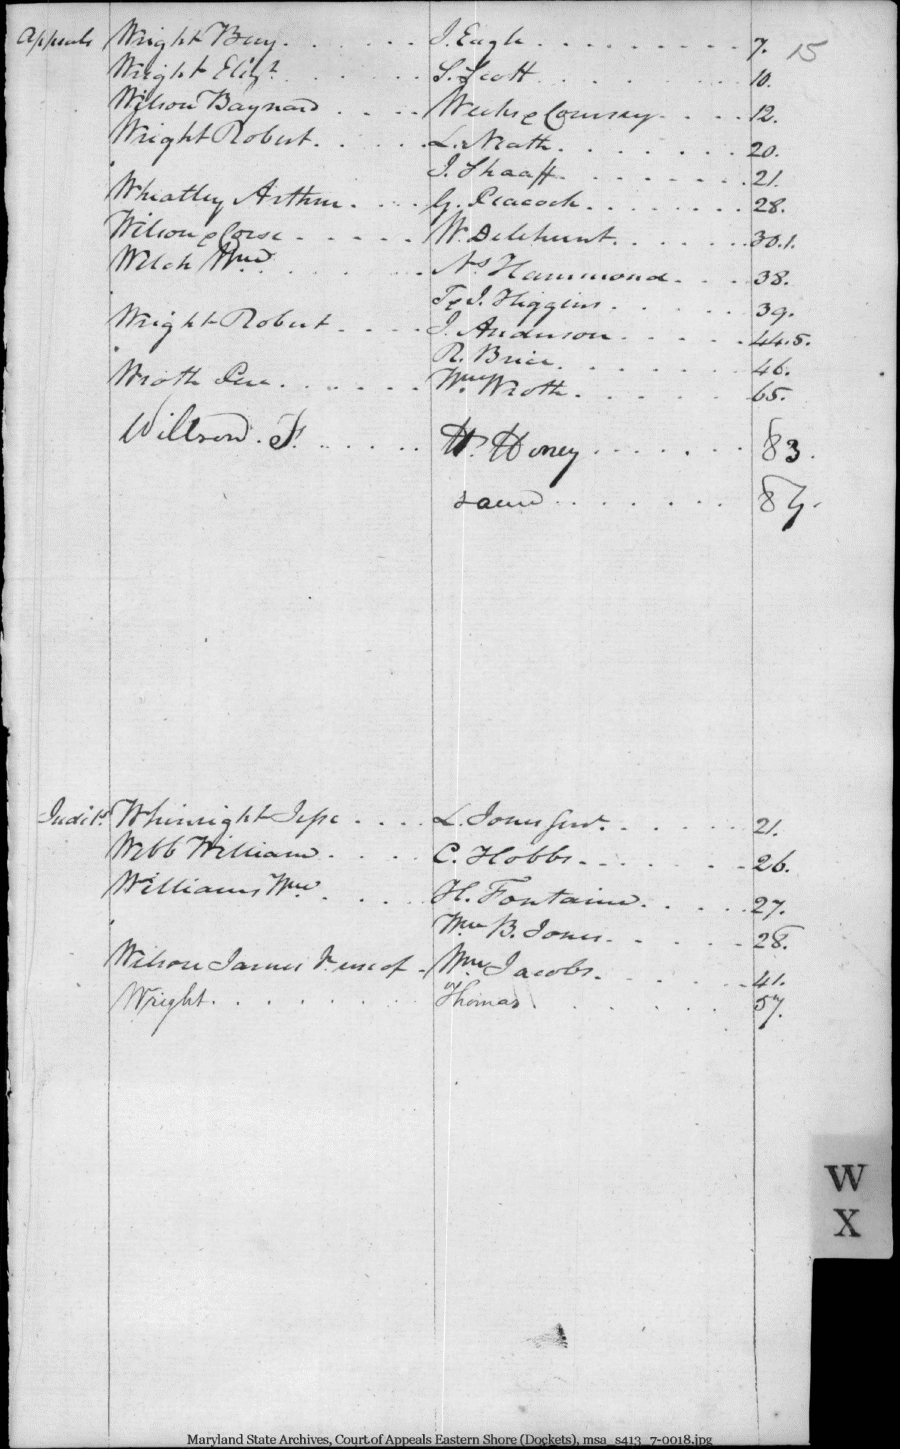 Appeals Wright Benj. . . . . . . J. Eagle . . . . . . . . . 7. 15
Wright Eliz. . . . . . . S. Scott . . . . . . . 10.
Wilson Baynard . . . . Weeks & Coursey . . . . 12.
Wright Robert . . . . . L. Neath . . . . . . . 20.
" J. Shaaff . . . . . . . . 21.
Wheatley Arthur . . . . G. Peacock . . . . . . . 28.
Wilson & Corse . . . . . W. Delehunt . . . . . . 30.1.
Welch Wm. . . . . . . Ns. Hammond . . . . 38.
" T & J. Higgins . . . . . 39.
Wright Robert . . . . J. Anderson . . . . . 44.5.
" R. Brice . . . . . . . 46.
Wroth Pere . . . . . . Wm. Wroth . . . . . . 65.
Willson. T. . . . . . H. Honey . . . . . . . 83.
same . . . . . . . . 84.
Judits. Whinright Jesse . . . . L. Jones . . . . . . 21.
Webb William . . . . C. Hobbs . . . . . . . 26.
Williams Wm . . . . H. Fontaine . . . . . 27.
" Wm B. Jones . . . . . 28.
Wilson James use of . Wm Jacobs . . . . . . 41.
Wright . . . . . . . vs Thomas . . . . . . 57.
W
X
Maryland State Archives, Court of Appeals Eastern Shore (Dockets), msa_s413_7-0018.jpg